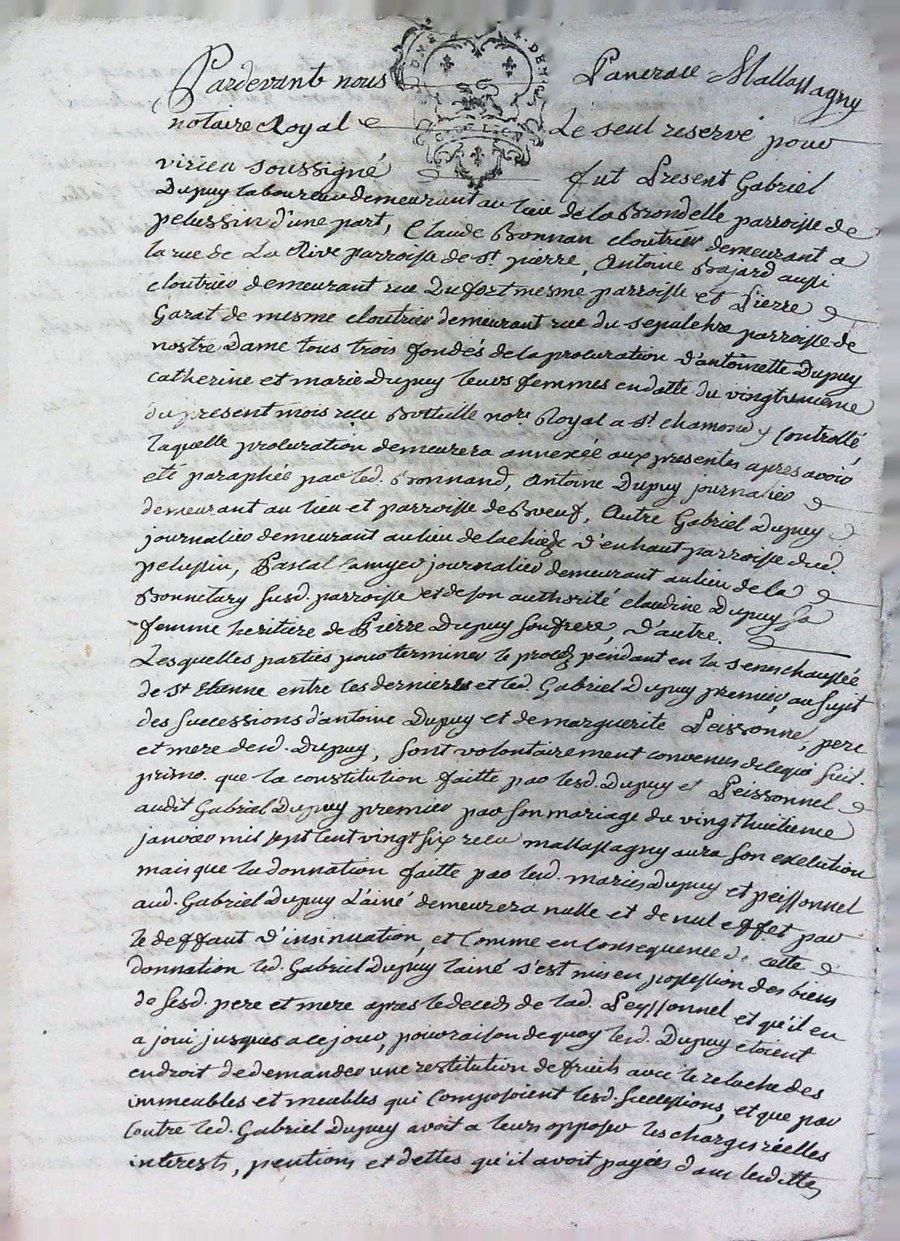 Pardevant nous Pancrace Mallassagny
notaire Royal Le seul reservé pour
virieu soussigné fut Present Gabriel
Dupuy laboureur demeurant au lieu de la Brondelle parroisse de
pelussin d'une part, Claude Bonnan cloutrier demeurant a
la rue de La Rive parroisse de St pierre, Antoine Bajard aussi
cloutrier demeurant rue Du fort mesme parroisse et Pierre
Garat de mesme cloutrier demeurant rue du sepulchre parroisse de
nostre Dame tous trois fondés de la procuration d'antoinette Dupuy
catherine et marie Dupuy leurs femmes en datte du vingtunieme
du present mois recu nore. Royal a St chamond y Controllé
laquelle procuration demeurera annexée aux presentes apres avoir
eté paraphée par led. Bonnand, Antoine Dupuy journalier
demeurant au lieu et parroisse de Bœuf, Autre Gabriel Dupuy
journalier demeurant au lieu de la d'enhaut parroisse dud.
pelussin, Pascal journalier demeurant au lieu de la
Bonnetary susd. parroisse et de son authorité claudine Dupuy sa
femme heritiere de Pierre Dupuy son frere, d'autre.
Lesquelles parties pour terminer le procez pendant en la seneschaussée
de St Etienne entre les dernieres et led. Gabriel Dupuy premier, au sujet
des successions d'antoine Dupuy et de marguerite Peissonnel, pere
et mere desd. Dupuy, sont volontairement convenus de ce qui suit.
primo. que la constitution faitte par lesd. Dupuy et Peissonnel
audit Gabriel Dupuy premier par son mariage du vingthuitieme
janvier mil sept cent vingt six recu mallassagny aura son execution
mais que la donnation faitte par lesd. maries Dupuy et peissonnel
aud. Gabriel Dupuy L'ainé demeurera nulle et de nul effet par
le deffaut d'insinuation, et Comme en consequence de cette
donnation led. Gabriel Dupuy lainé s'est mis en possession des biens
de sesd. pere et mere apres le deceds de lad. Peyssonnel et qu'il en
a joui jusques a ce jour, pour raison de quoy lesd. Dupuy etoient
en droit de demander une restitution de fruits avec le relache des
immeubles et meubles qui composoient lesd. successions, et que par
Contre led. Gabriel Dupuy avoit a leurs opposer les charges réelles
interests, pentions et dettes qu'il avoit payées dans lesdittes